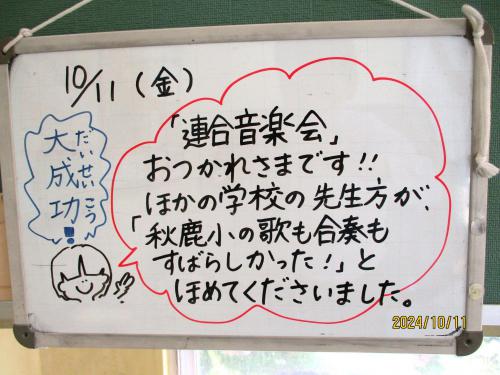 10/11(金)
「連合音楽会」
おつかれさまです!!
ほかの学校の先生方が、
「秋鹿小の歌も合奏も
すばらしかった!」と
ほめてくださいました。
だいせいこう
大成功!
2024/10/11